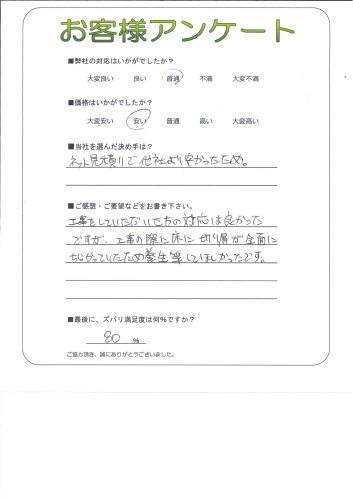 お客様アンケート
■弊社の対応はいかがでしたか？
大変良い 良い 普通 不満 大変不満
■価格はいかがでしたか？
大変安い 安い 普通 高い 大変高い
■当社を選んだ決め手は？
ネット見積りで他社より安かったため。
■ご感想・ご要望などをお書き下さい。
工事をしていただいた方の対応は良かった
ですが、工事の際に床に切り屑が全面に
ちらがっていたため養生等してほしかったです。
■最後に、ズバリ満足度は何%ですか？
80 %
ご協力頂き、誠にありがとうございました。